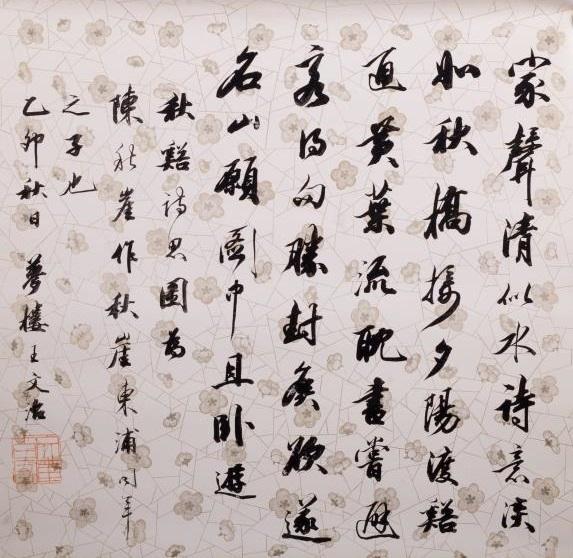 家聲清似水詩意淡
如秋橋接夕陽渡谿
通黄葉流耽書嘗避
客得句勝封侯欲遂
名山願圖中且卧遊
秋谿詩思圖為
陳秋崖作秋崖東浦同年
之子也
乙卯秋日 夢樓王文治